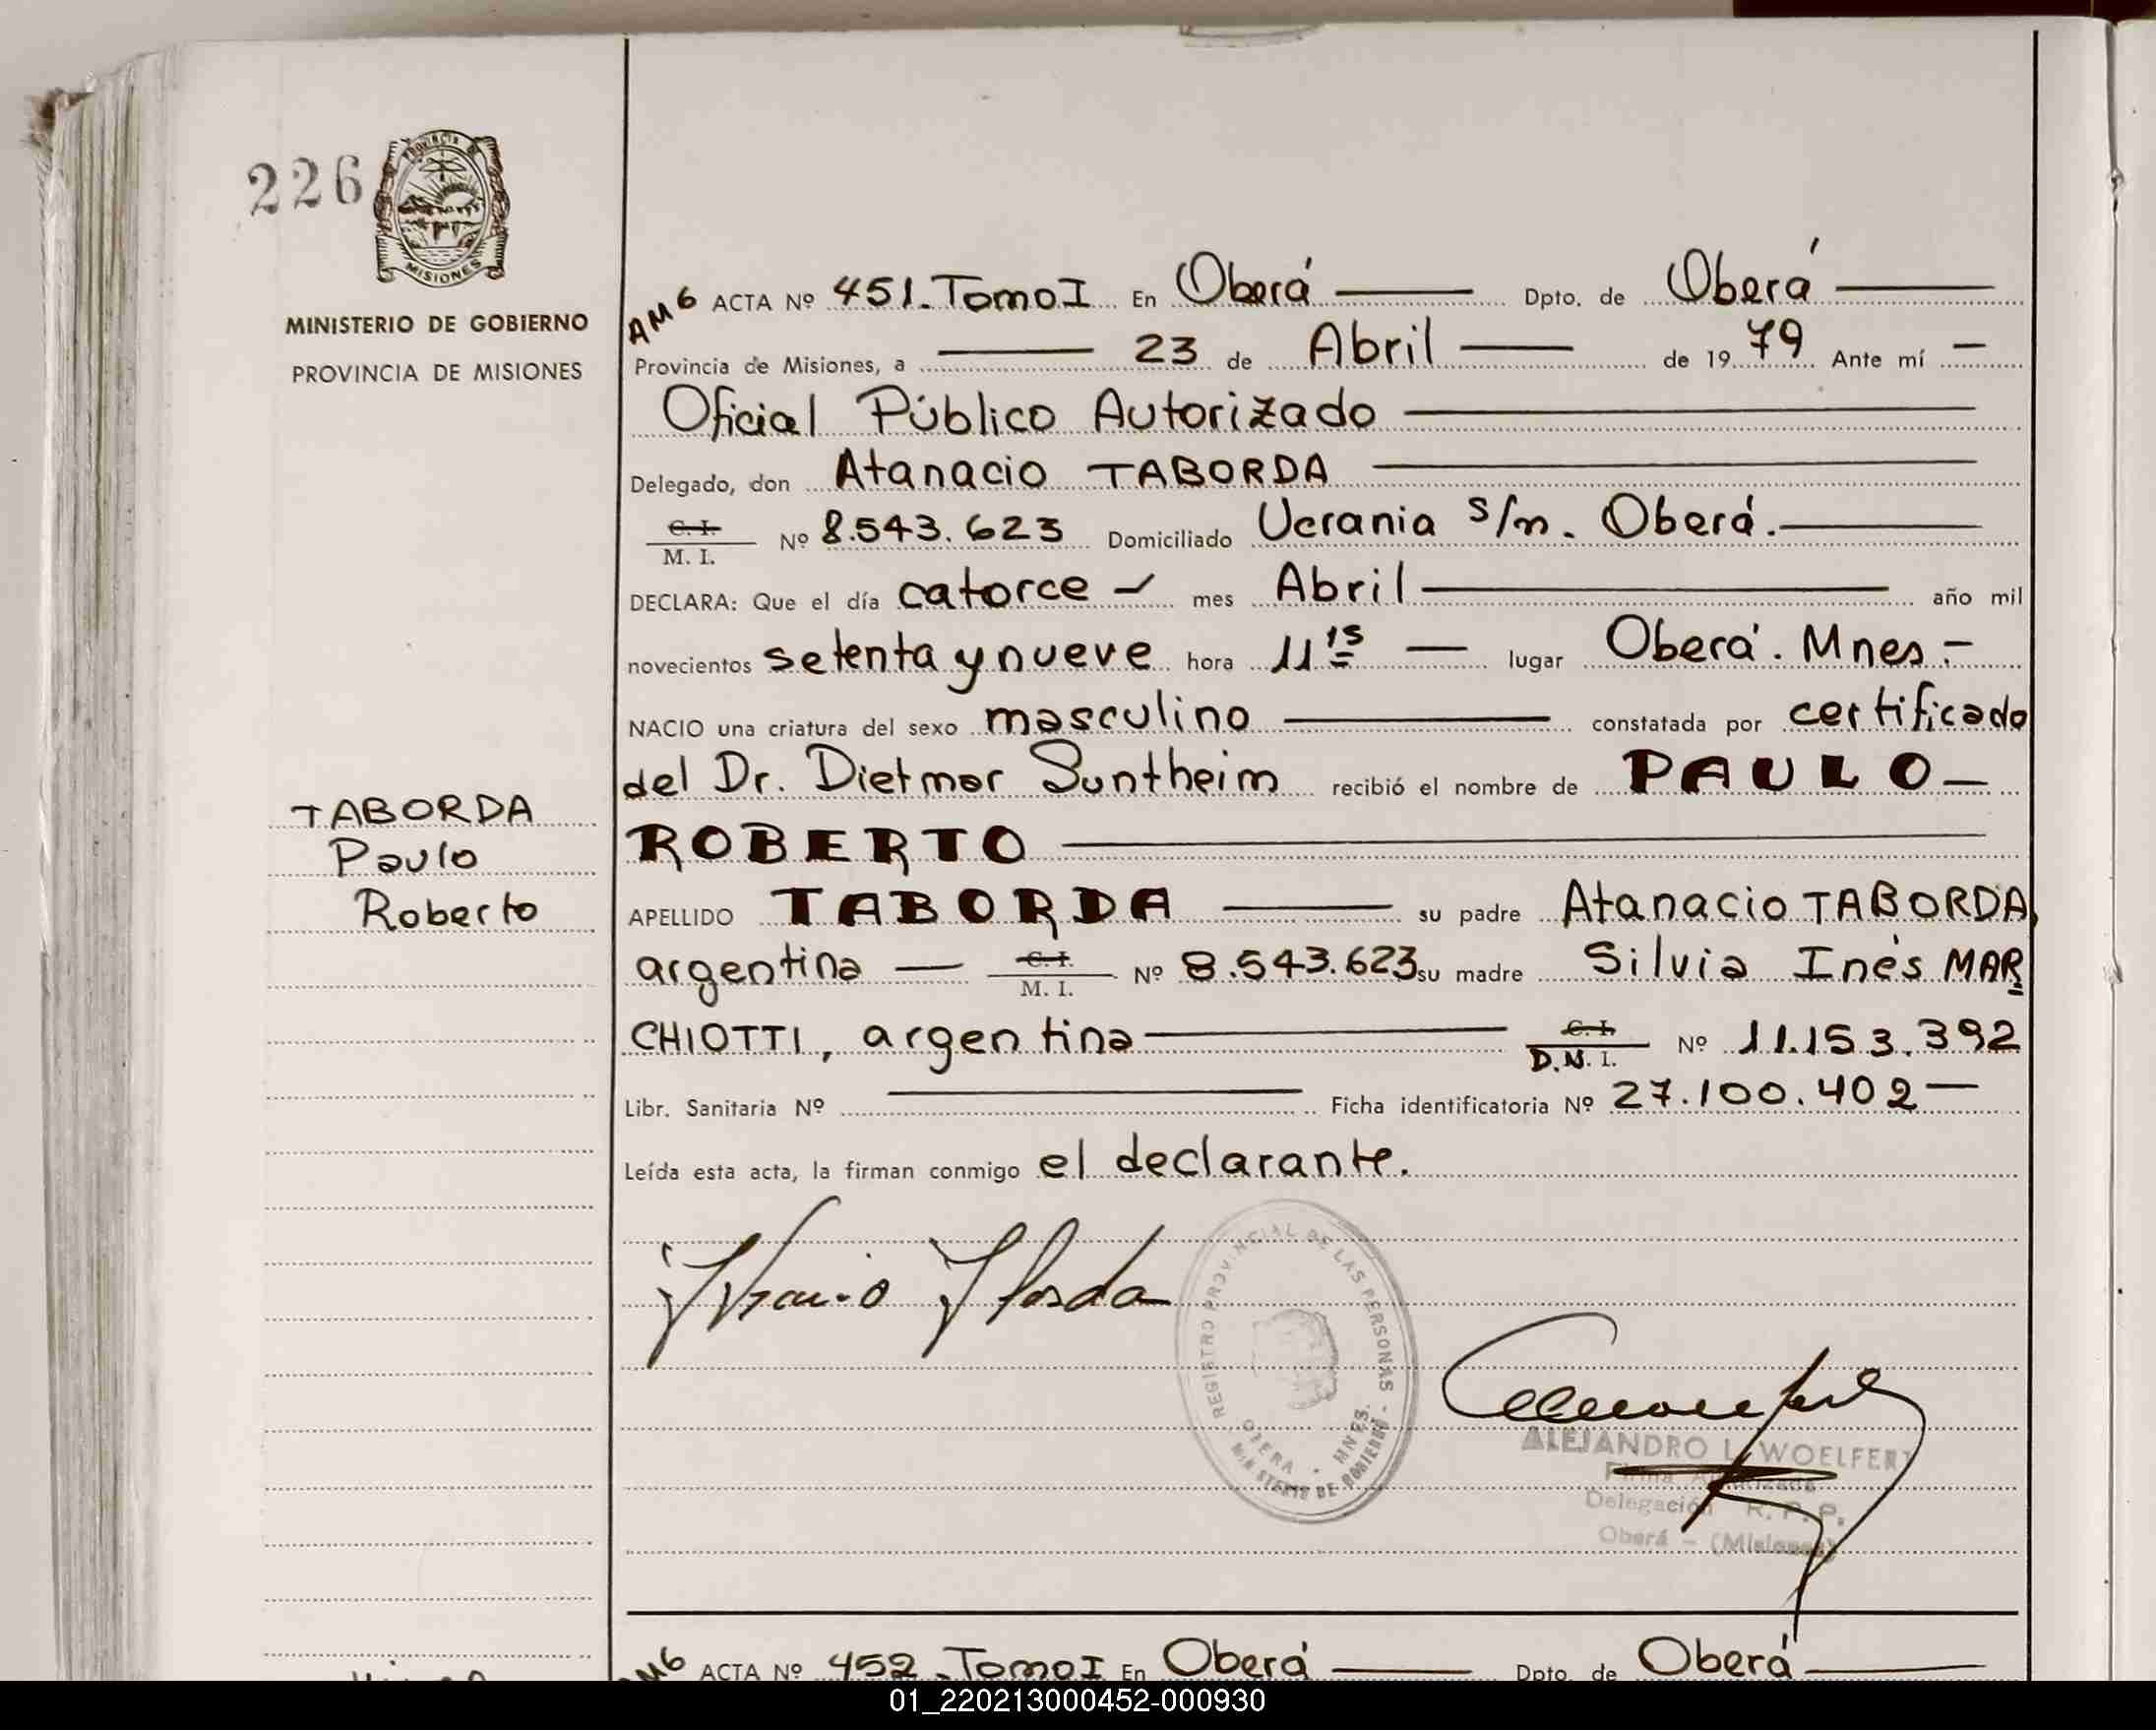 226
PROVINCIA DE
MISIONES
MINISTERIO DE GOBIERNO
PROVINCIA DE MISIONES
TABORDA
Paulo
Roberto
AM6 ACTA Nº 451. Tomo I En Oberá Dpto. de Oberá
Provincia de Misiones, a 23 de Abril de 1979 Ante mí
Oficial Público Autorizado
Delegado, don Atanacio TABORDA
C. I. / M. I. Nº 8.543.623 Domiciliado Ucrania s/n. Oberá.
DECLARA: Que el día catorce mes Abril año mil
novecientos setenta y nueve hora 11 15 lugar Oberá. Mnes.-
NACIO una criatura del sexo masculino constatada por certificado
del Dr. Dietmar Suntheim recibió el nombre de PAULO
ROBERTO
APELLIDO TABORDA su padre Atanacio TABORDA,
argentina C. I. / M. I. Nº 8.543.623 su madre Silvia Inés MAR
CHIOTTI, argentina C. I. / D.N.I. Nº 11.153.392
Libr. Sanitaria Nº Ficha identificatoria Nº 27.100.402
Leída esta acta, la firman conmigo el declarante.
REGISTRO PROVINCIAL DE LAS PERSONAS
OBERA - MNES.
MINISTERIO DE GOBIERNO
ALEJANDRO L. WOELFERT
Firma Autorizada
Delegación R. P. P.
Oberá - (Misiones)
AM6 ACTA Nº 452. Tomo I En Oberá Dpto. de Oberá
01_220213000452-000930